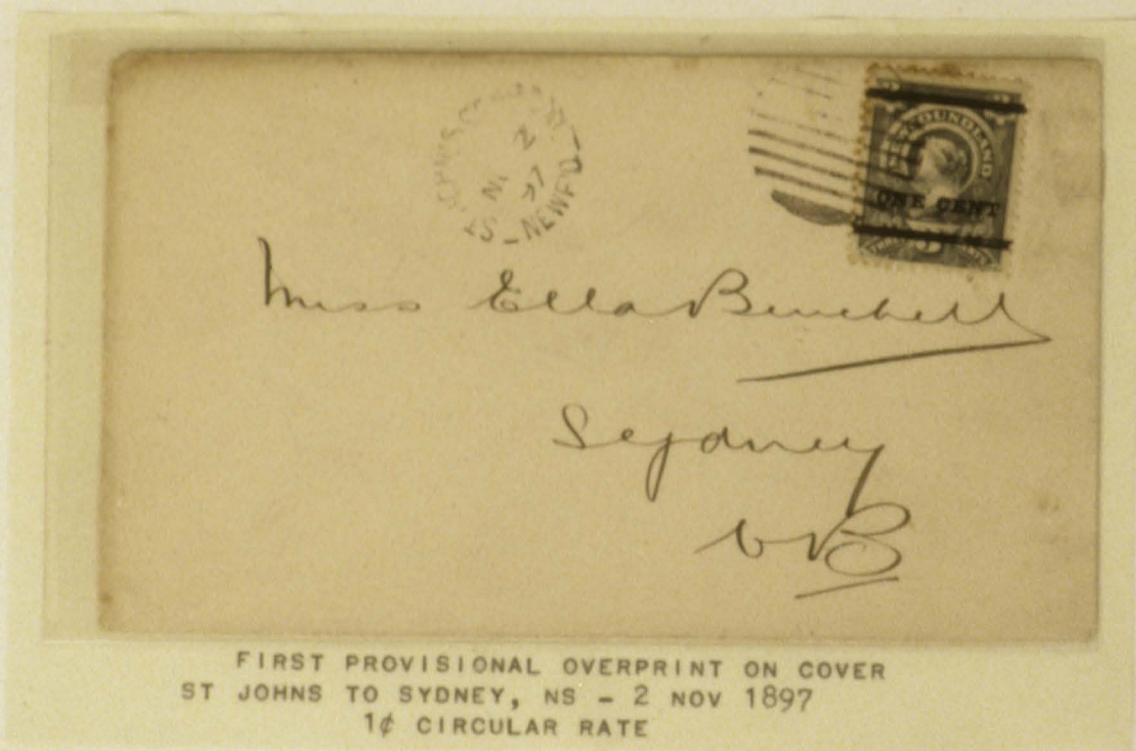 ST JOHN'S
NO 2
97
NEWF'D
NEWFOUNDLAND
ONE CENT
Miss Ella Burchell
Sydney
CB
FIRST PROVISIONAL OVERPRINT ON COVER
ST JOHNS TO SYDNEY, NS - 2 NOV 1897
1¢ CIRCULAR RATE